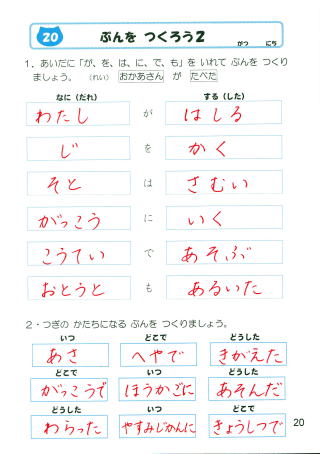 20 ぶんを つくろう2
がつ にち
1．あいだに「が、を、は、に、で、も」を いれて ぶんを つくり
ましょう。 （れい） おかあさん が たべた
なに（だれ） する（した）
わたし が はしる
じ を かく
そと は さむい
がっこう に いく
こうてい で あそぶ
おとうと も あるいた
2・つぎの かたちになる ぶんを つくりましょう。
いつ どこで どうした
あさ へやで きがえた
どこで いつ どうした
がっこうで ほうかごに あそんだ
どうした いつ どこで
わらった やすみじかんに きょうしつで
20